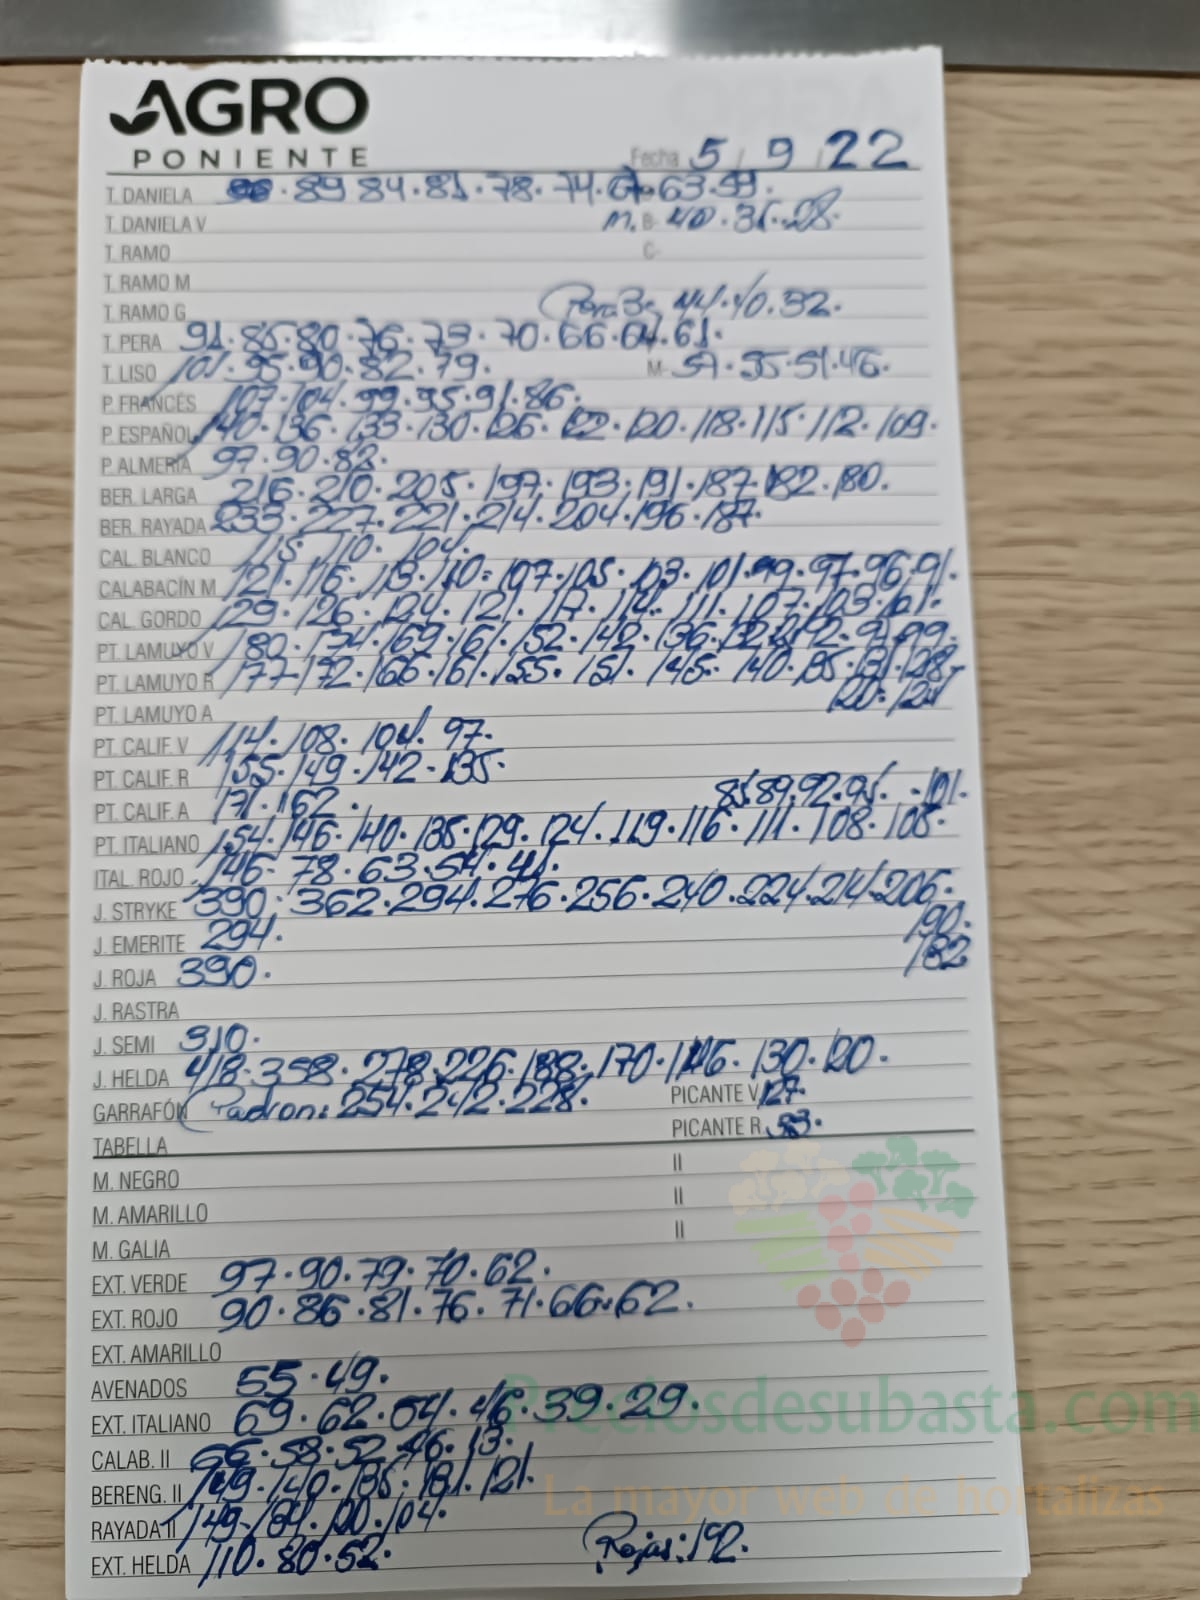 AGRO
PONIENTE
Fecha 5 / 9 / 22
T. DANELA 89 84.81.78.74.67.63.59.
T. DANIELA V M. B- 40.36.28.
T. RAMO C-
T. RAMO M
T. RAMO G Pera B: 44.40.32.
T. PERA 91.85.80.76.73.70.66.64.61.
T. LISO 101.95.90.82.79. M- 59.55.51.46.
P. FRANCÉS 107.104.99.95.91.86.
P. ESPAÑOL 140.136.133.130.126.122.120.118.115.112.109.
P. ALMERÍA 97.90.82.
BER. LARGA 216.210.205.197.193.191.187.182.180.
BER. RAYADA 233.227.221.214.204.196.187.
CAL. BLANCO 115.110.104.
CALABACÍN M 121.116.113.110.107.105.103.101.99.97.96.91.
CAL. GORDO 129.126.124.121.117.114.111.107.103.101.
PT. LAMUYO V 180.174.169.161.152.142.136.132
PT. LAMUYO R 177.172.166.161.155.151.145.140.135.131.128.
120.124
PT. LAMUYO A
PT. CALIF. V 114.108.104.97.
PT. CALIF. R 155.149.142.135.
PT. CALIF. A 171.162. 85.89.92.95.101.
PT. ITALIANO 154.146.140.135.129.124.119.116.111.108.105.
ITAL. ROJO 146.78.63.54.41.
J. STRYKE 390.362.294.276.256.240.224.214.206.
190.
J. EMERITE 294.
182
J. ROJA 390.
J. RASTRA
J. SEMI 310.
J. HELDA 418.358.278.226.188.170.146.130.120.
GARRAFÓN Padron: 254.242.228. PICANTE V. 127.
TABELLA PICANTE R. 93.
M. NEGRO II
M. AMARILLO II
M. GALIA II
EXT. VERDE 97.90.79.70.62.
EXT. ROJO 90.86.81.76.71.66.62.
EXT. AMARILLO
AVENADOS 55.49.
EXT. ITALIANO 69.62.54.46.39.29.
Preciosdesubasta.com
CALAB. II 66.58.52.46.13.
BERENG. II 149.140.135.131.121.
La mayor web de hortalizas
RAYADA II 149.134.120.104.
EXT. HELDA 110.80.52. Rojas: 192.